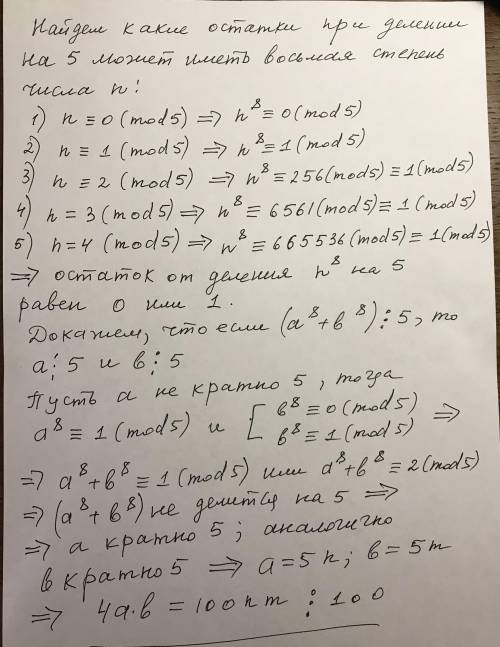 Найдем какие остатки при делении
на 5 может иметь восьмая степень
числа n:
1) n ≡ 0 (mod 5) ⇒ n⁸ ≡ 0 (mod 5)
2) n ≡ 1 (mod 5) ⇒ n⁸ ≡ 1 (mod 5)
3) n ≡ 2 (mod 5) ⇒ n⁸ ≡ 256 (mod 5) ≡ 1 (mod 5)
4) n = 3 (mod 5) ⇒ n⁸ ≡ 6561 (mod 5) ≡ 1 (mod 5)
5) n = 4 (mod 5) ⇒ n⁸ ≡ 665536 (mod 5) ≡ 1 (mod 5)
⇒ остаток от деления n⁸ на 5
равен 0 или 1.
Докажем, что если (a⁸ + b⁸) ⋮ 5, то
a ⋮ 5 и b ⋮ 5
Пусть a не кратно 5, тогда
a⁸ ≡ 1 (mod 5) и [ b⁸ ≡ 0 (mod 5)
b⁸ ≡ 1 (mod 5) ⇒
⇒ a⁸ + b⁸ ≡ 1 (mod 5) или a⁸ + b⁸ ≡ 2 (mod 5)
⇒ (a⁸ + b⁸) не делится на 5 ⇒
⇒ a кратно 5; аналогично
b кратно 5 ⇒ a = 5n; b = 5m
⇒ 4a·b = 100nm ⋮ 100